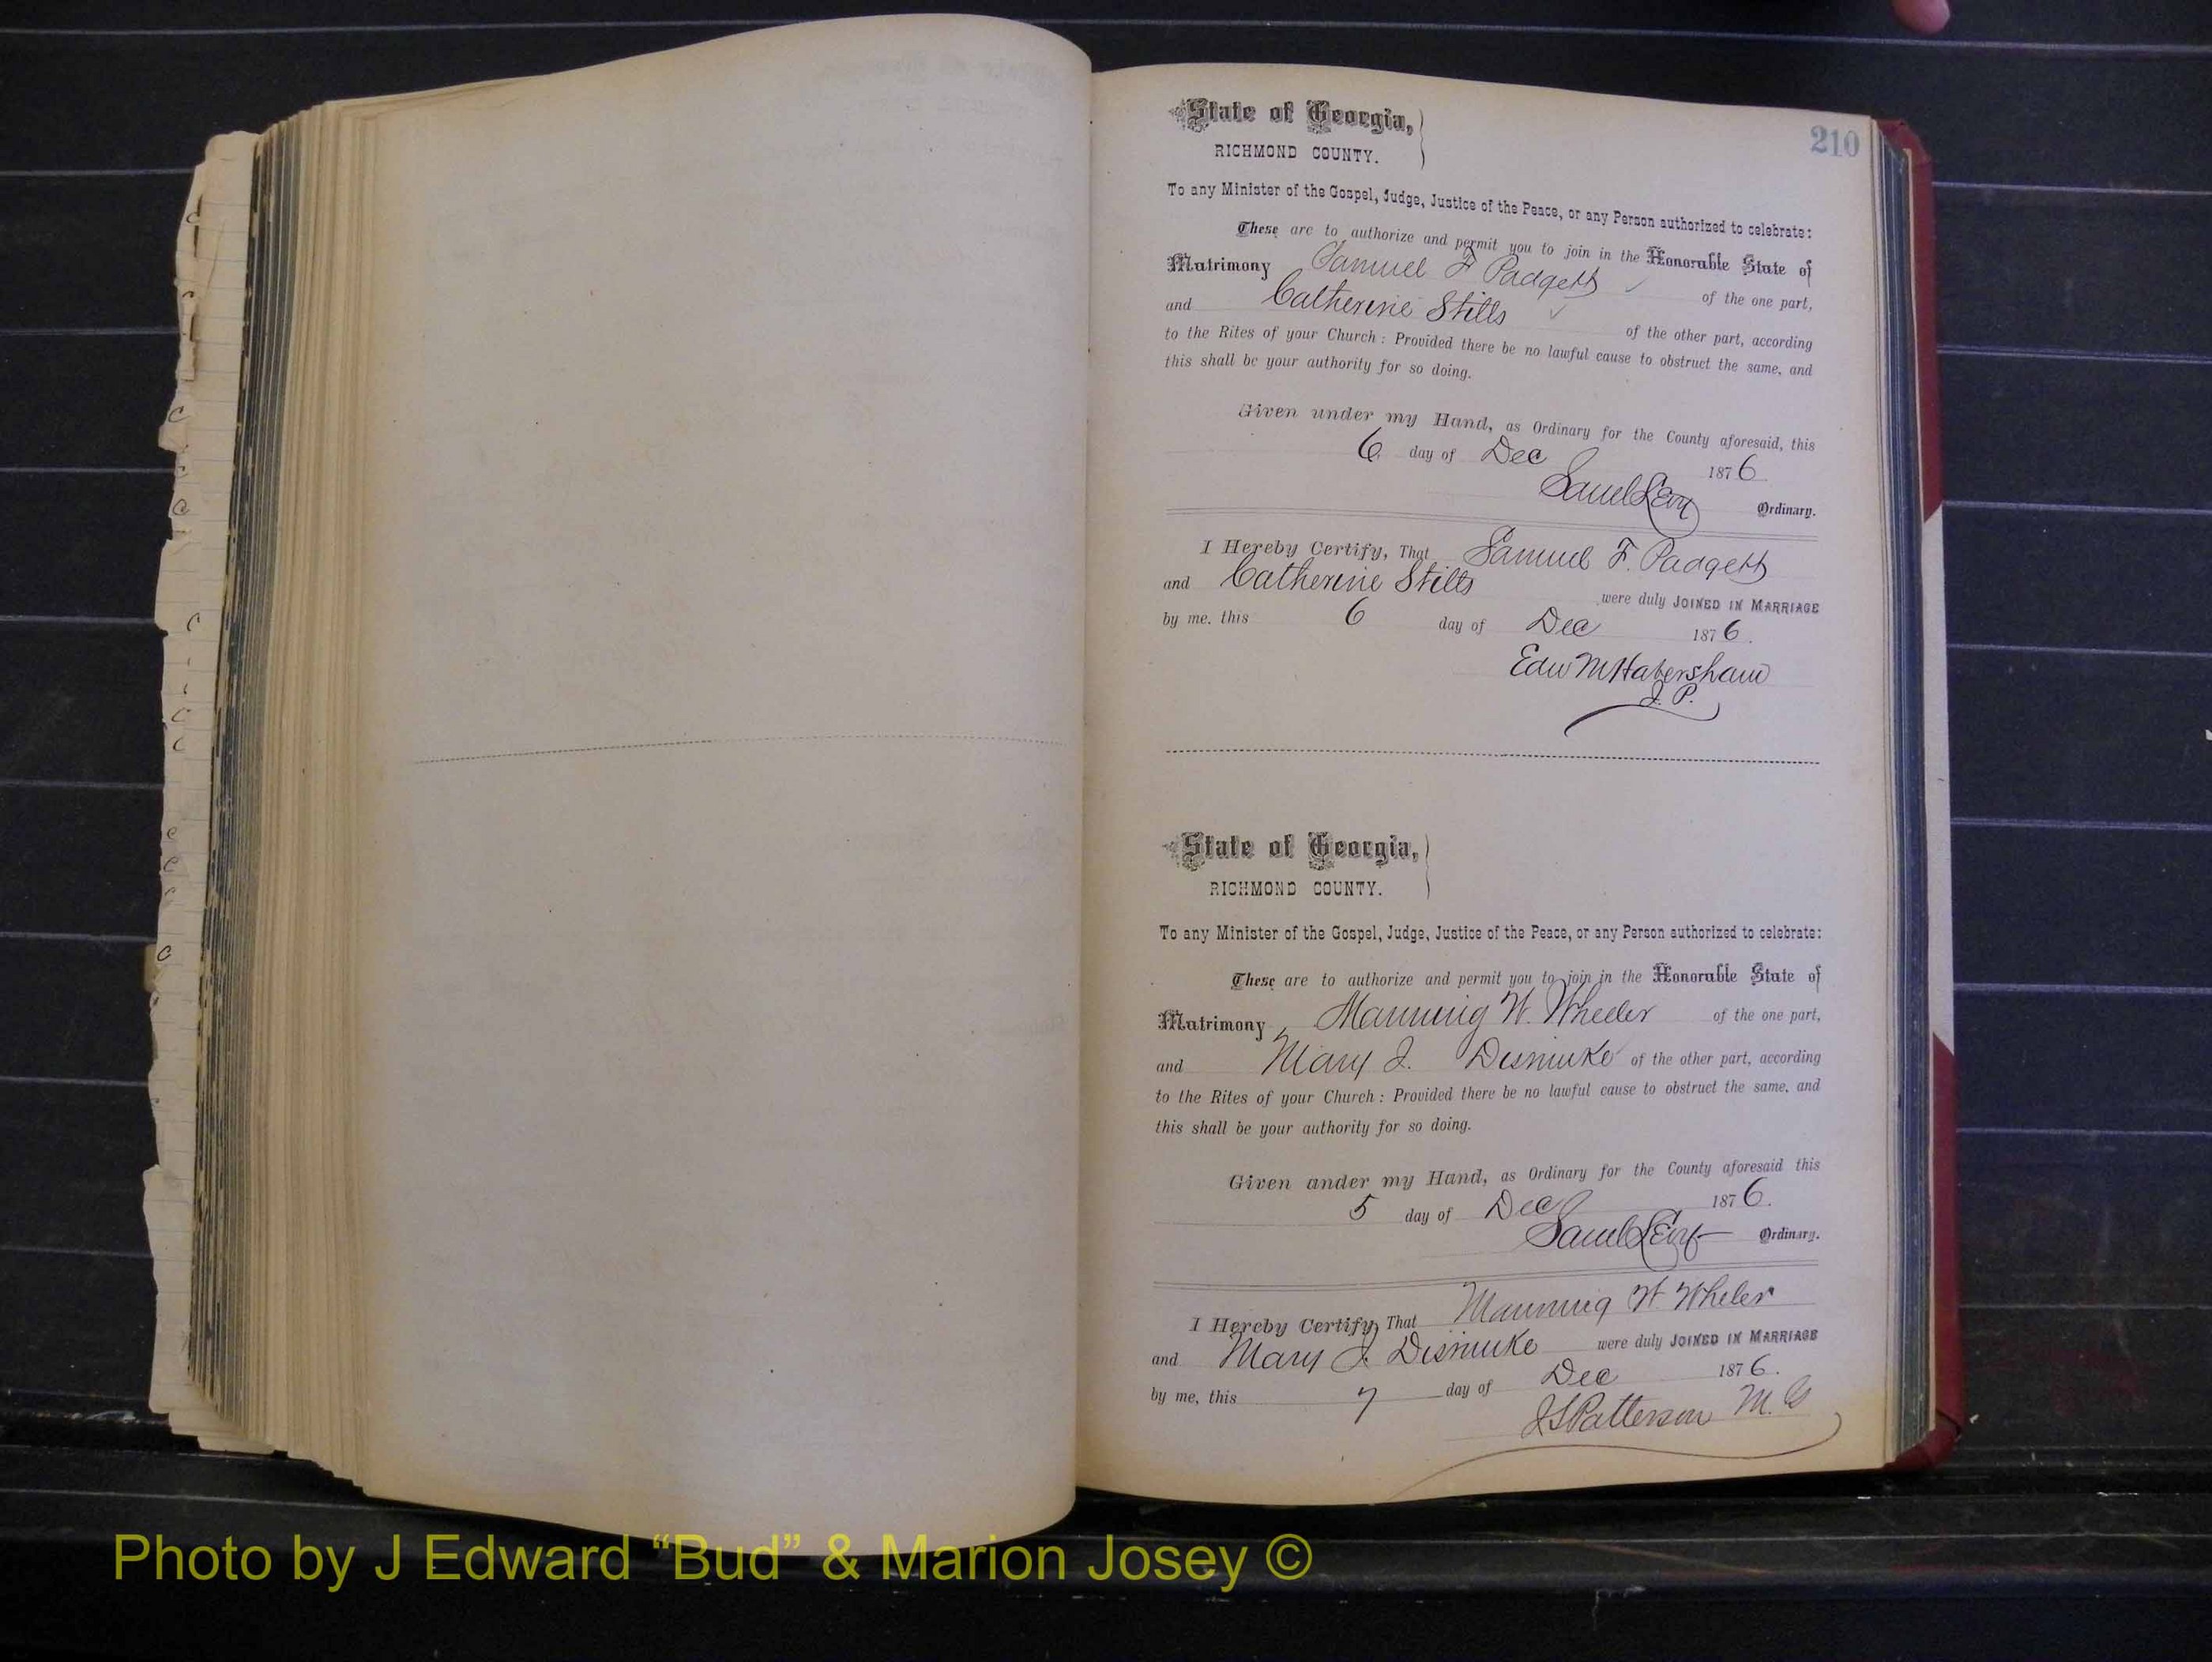 210
State of Georgia,
RICHMOND COUNTY.
To any Minister of the Gospel, Judge, Justice of the Peace, or any Person authorized to celebrate:
These are to authorize and permit you to join in the Honorable State of
Matrimony Samuel F Padgett of the one part,
and Catherine Stills of the other part, according
to the Rites of your Church: Provided there be no lawful cause to obstruct the same, and
this shall be your authority for so doing.
Given under my Hand, as Ordinary for the County aforesaid, this
6 day of Dec 1876
Saml Levy Ordinary.
I Hereby Certify, That Samuel F. Padgett
and Catherine Stilts were duly JOINED IN MARRIAGE
by me. this 6 day of Dec 1876.
Edw M Habersham
J. P.
State of Georgia,
RICHMOND COUNTY.
To any Minister of the Gospel, Judge, Justice of the Peace, or any Person authorized to celebrate:
These are to authorize and permit you to join in the Honorable State of
Matrimony, Manning W. Wheeler of the one part,
and Mary J. Dismuke of the other part, according
to the Rites of your Church: Provided there be no lawful cause to obstruct the same, and
this shall be your authority for so doing.
Given under my Hand, as Ordinary for the County aforesaid this
5 day of Dec 1876.
Saml Levy Ordinary.
I Hereby Certify, That Manning W Wheler
and Mary J. Dismuke were duly JOINED IN MARRIAGE
by me, this 7 day of Dec 1876.
J S Patterson M. G
Photo by J Edward “Bud” & Marion Josey ©